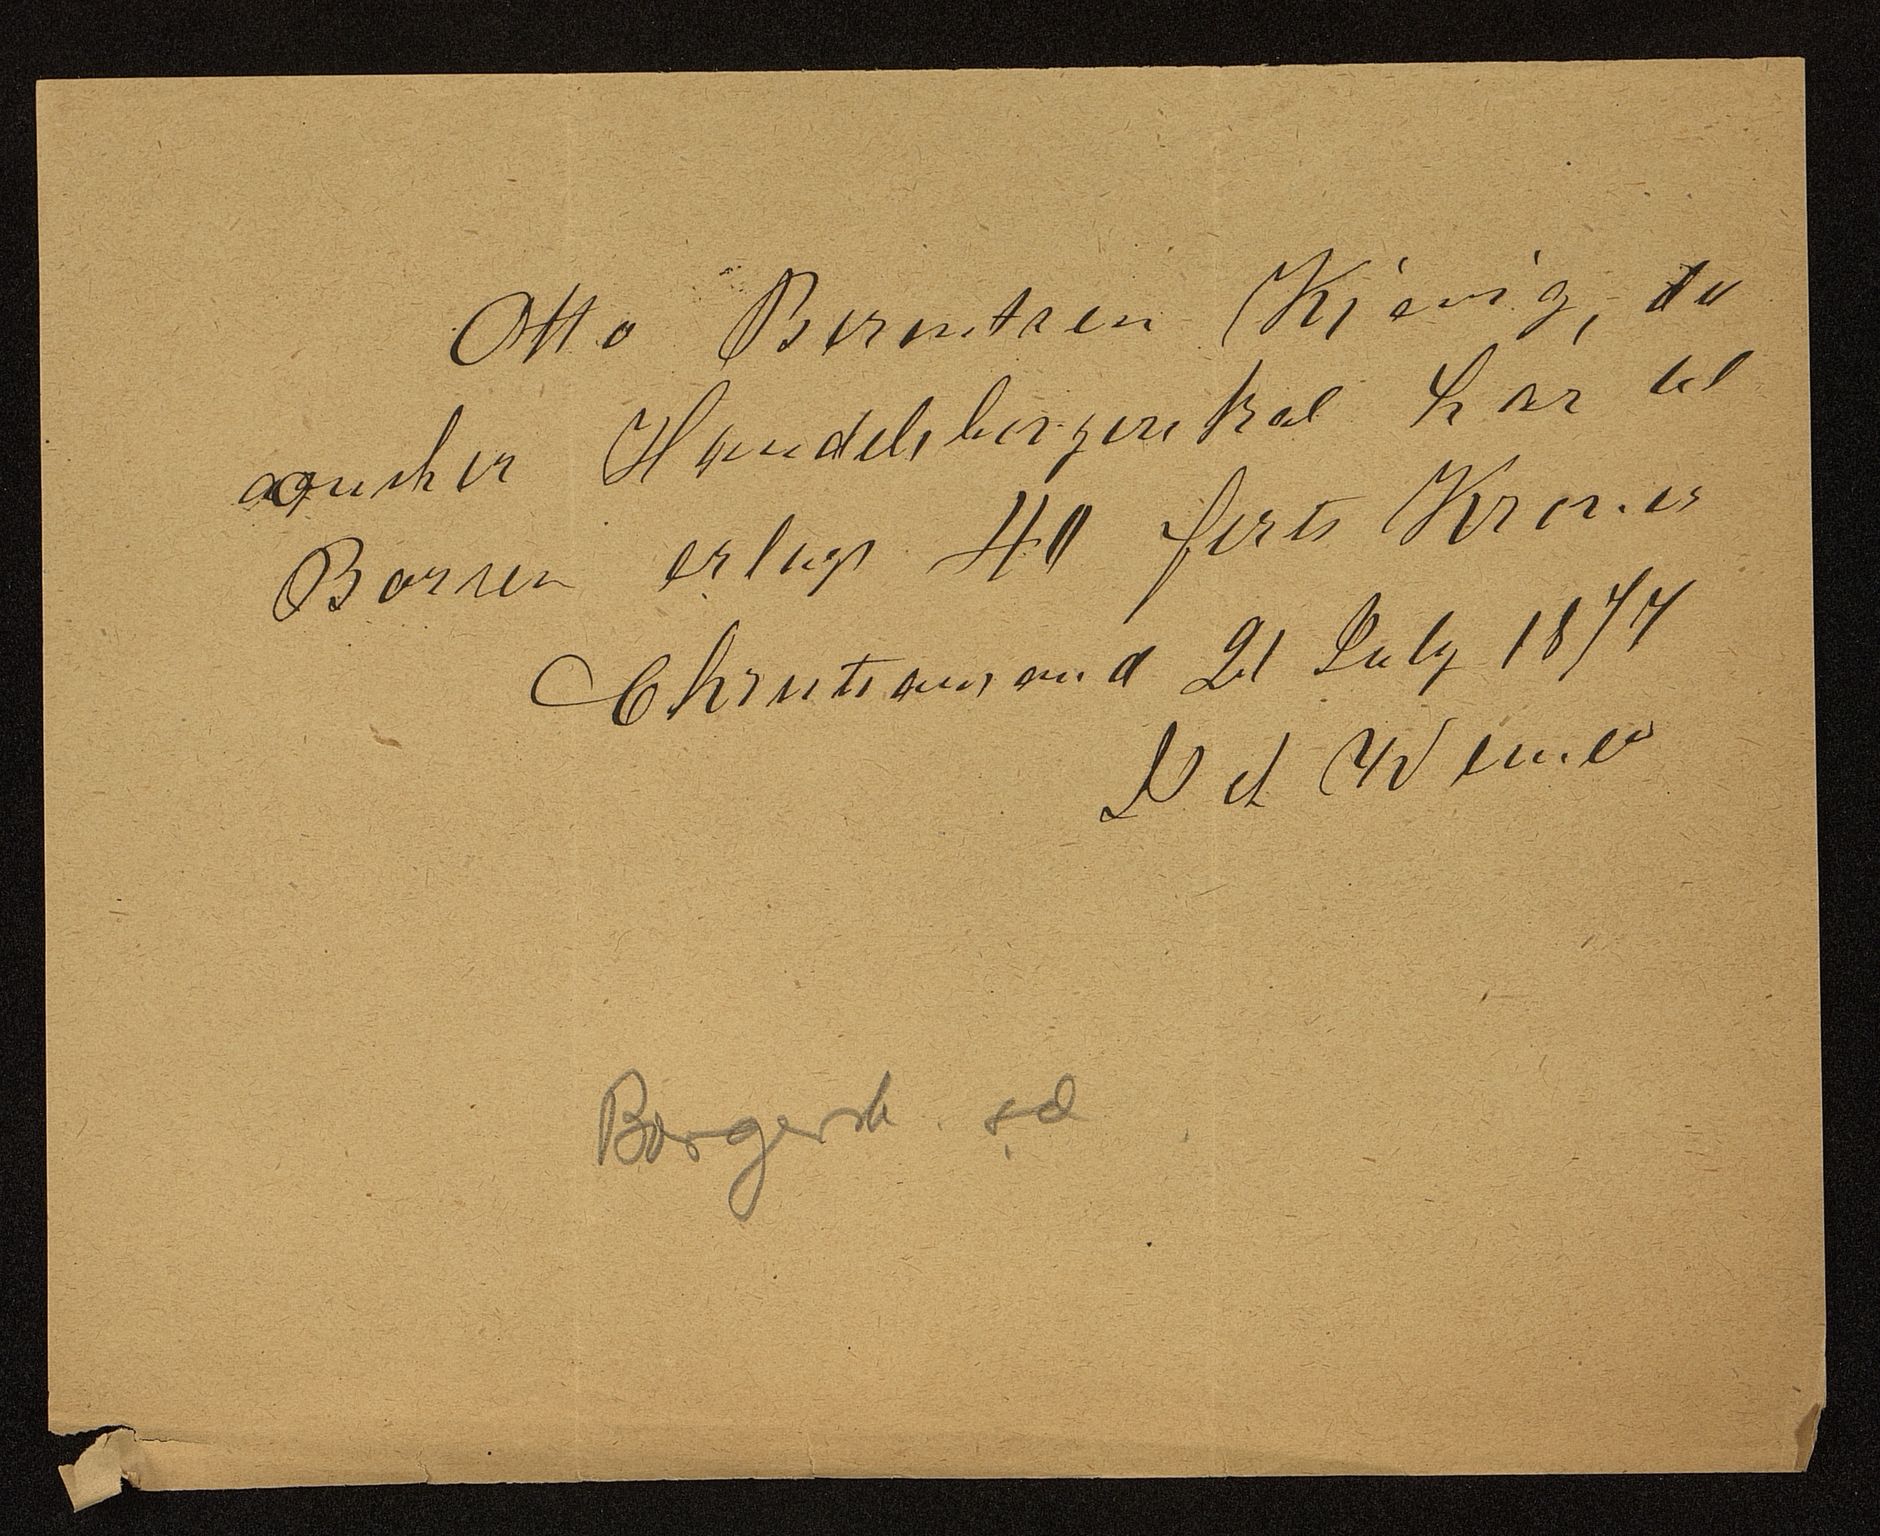 Otto Berentsen Kjevig, da
ønsker Handelsborgerskab har til
Børsen erlagt 40 førti Kroner
Christiansand 21 July 1877
Borgersk